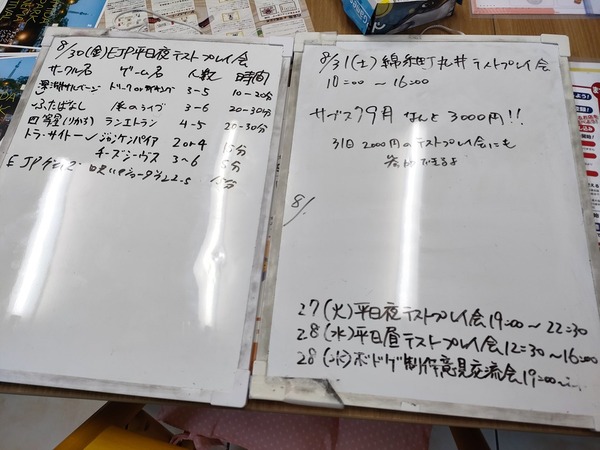 8/30(金)EJP平日夜テストプレイ会
サークル名 ゲーム名 人数 時間
3-5 10-30分
ふたばなし 3-6 20-30分
四等星(りかる) ランエトラン 4-5 20-30分
トラ・サイトー ジャンケンパイア 2or4 15分
チーズシーヴス 3~6 分
EJP 2-5 15分
8/31(土)錦糸町丸井テストプレイ会
10:00 ~ 16:00
サブスク9月 なんと 3000円!!
31日 2000円のテストプレイ会にも
参加できるよ
8/
27(火)平日夜テストプレイ会19:00~22:30
28(水)平日昼テストプレイ会12:30~16:00
28(水)ボドゲ制作意見交流会19:00~